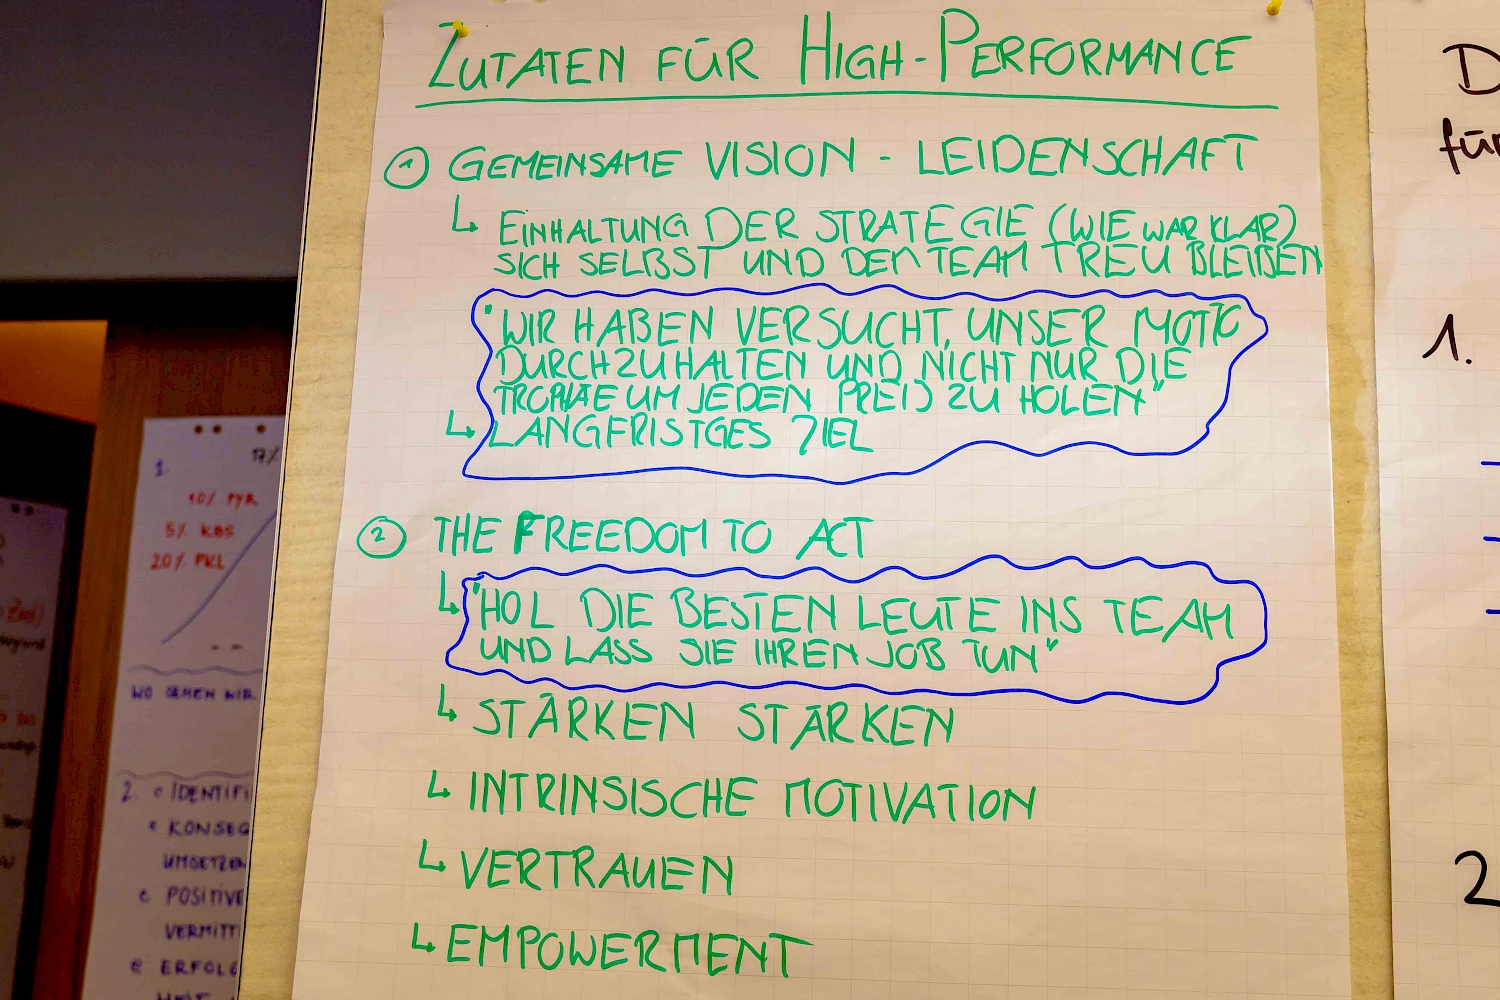 ZUTATEN FÜR HIGH-PERFORMANCE
① GEMEINSAME VISION - LEIDENSCHAFT
↳ EINHALTUNG DER STRATEGIE (WIE WAR KLAR)
SICH SELBST UND DEM TEAM TREU BLEIBEN
"WIR HABEN VERSUCHT, UNSER MOTTO
DURCHZUHALTEN UND NICHT NUR DIE
TROPHÄE UM JEDEN PREIS ZU HOLEN"
↳ LANGFRISTGES ZIEL
② THE FREEDOM TO ACT
↳ "HOL DIE BESTEN LEUTE INS TEAM
UND LASS SIE IHREN JOB TUN"
↳ STÄRKEN STÄRKEN
↳ INTRINSISCHE MOTIVATION
↳ VERTRAUEN
↳ EMPOWERMENT
1.
17%
10% PYR
5% KBS
20% PKL
WO SEHEN WIR
2. • IDENTIFI
• KONSEQ
UMSETZEN
• POSITIVE
VERMITT
• ERFOLG
D
für
1.
2